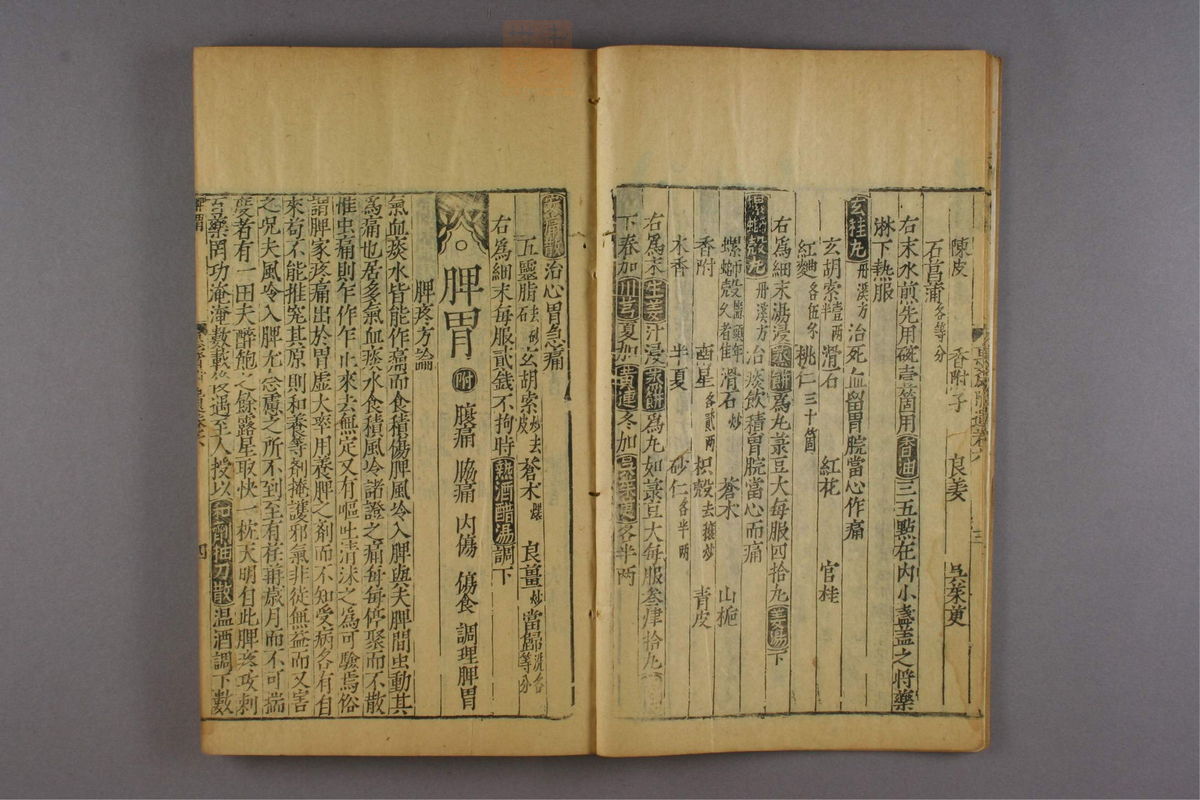 陳皮 香附子 良姜 吳茱萸
石菖蒲各等分
右末水煎先用碗壹箇用香油三五點在内小盞盖之將藥
淋下熱服
玄桂丸丹溪方 治死血留胃脘當心作痛
玄胡索壹兩半 滑石 紅花 官桂
紅麯各伍分 桃仁三十箇
右爲細末湯浸蒸餅爲丸菉豆大每服四拾丸姜湯下
螺螄殼丸丹溪方 治痰飲積胃脘當心而痛
螺螄殼 滑石炒 蒼术 山梔
香附 南星各貳兩 枳殼去穰炒 青皮
木香 半夏 砂仁各半兩
右爲末生姜汁浸蒸餅爲丸如菉豆大每服叁肆拾丸
下春加川芎夏加黄連冬加吳茱萸各半兩
治心胃急痛
五靈脂去砂石 玄胡索炒去皮 蒼术煨 良薑炒 當歸洗各等分
右爲細末每服貳錢不拘時熱酒醋湯調下
脾胃 附 腹痛 脇痛 内傷 傷食 調理脾胃
脾疼方論
氣血痰水皆能作痛而食積傷脾風冷入脾與夫脾間虫動其
爲痛也居多氣血痰水食積風冷諸證之痛每每停聚而不散
惟虫痛則乍作乍止來去無定又有嘔吐清沫之爲可驗焉俗
謂脾家疼痛出於胃虚大率用養脾之劑而不知受病各有自
來苟不能推究其原則和養等劑掩護邪氣非徒無益而又害
之况夫風冷入脾尤念慮之所不到至有荏苒歲月而不可揣
度者有一田夫醉飽之餘露星取快一枕天明有此脾疼攻刺
百藥罔功淹淹數載後遇至人授以和劑抽刀散温酒調下數
脾胃
四